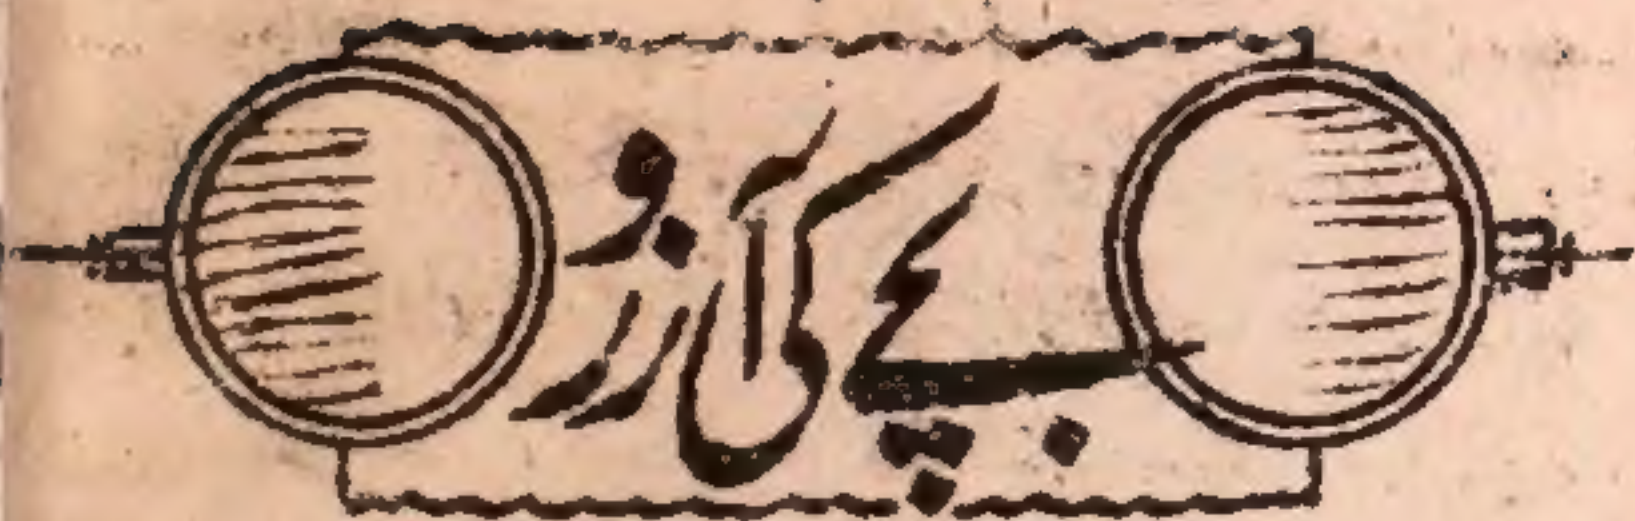 بچے کی آرزو